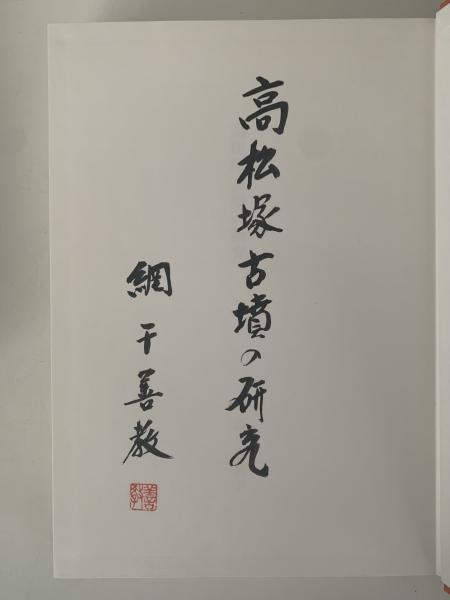 高松塚古墳の研究
網干善教